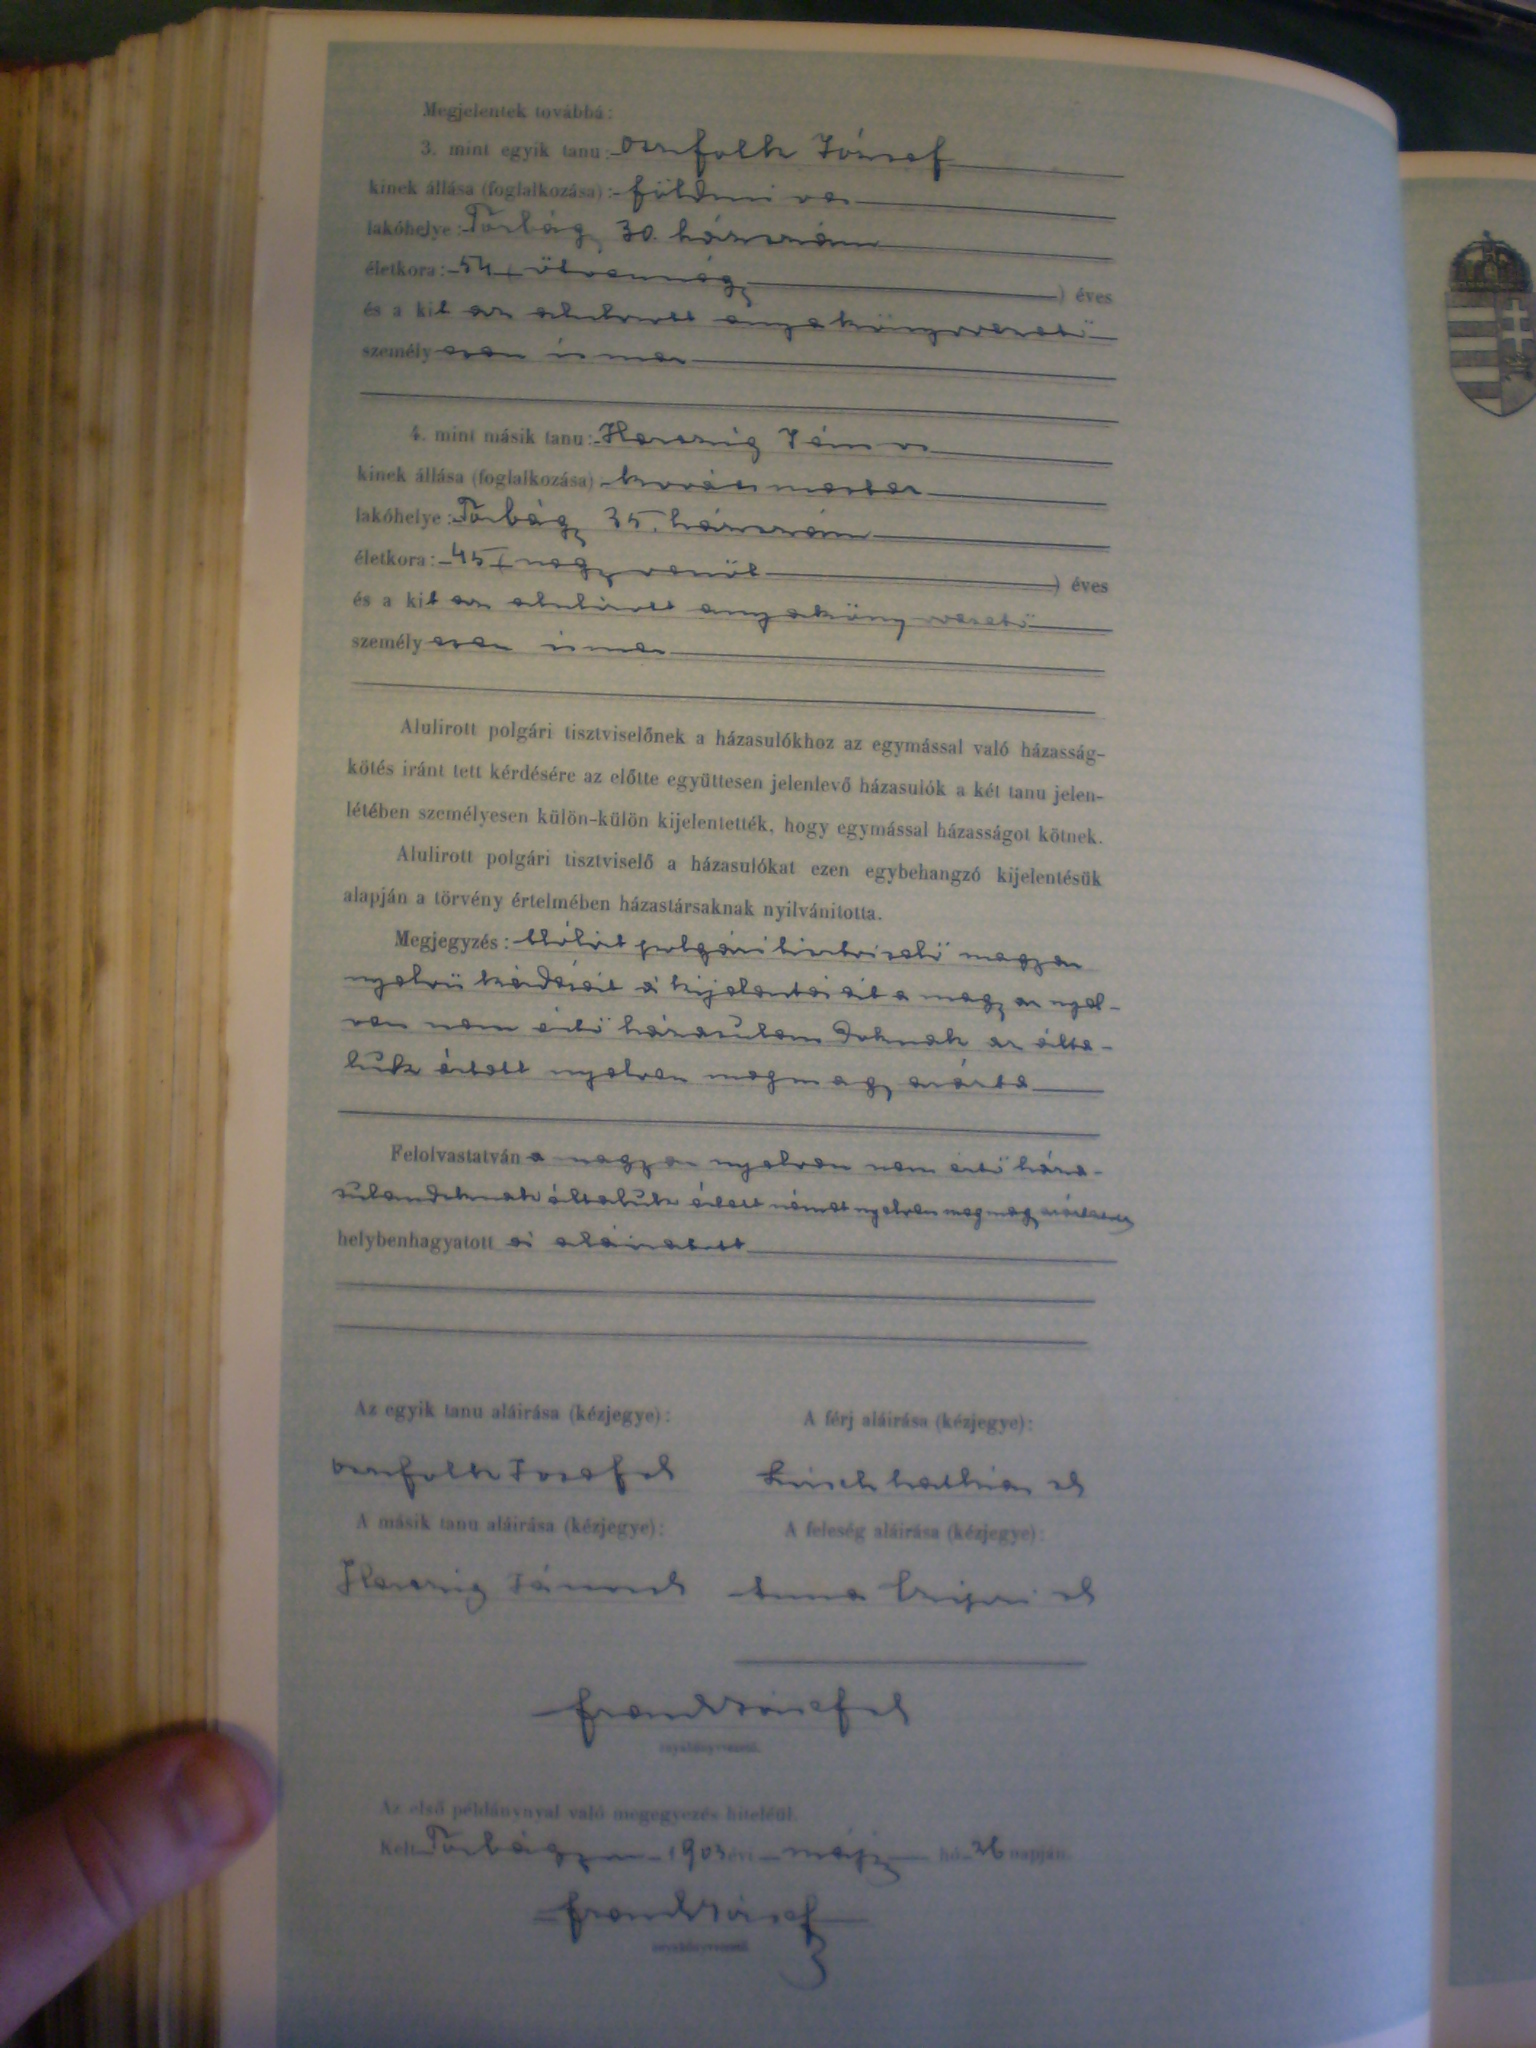 Megjelentek továbbá:
3. mint egyik tanu: József
kinek állása (foglalkozása): földmives
lakóhelye: Törbágy 30. házszám
életkora: 54 (ötvennégy) éves
és a kit az alulirott anyakönyvvezető
személyesen ismer
4. mint másik tanu: Herczig János
kinek állása (foglalkozása): kovácsmester
lakóhelye: Törbágy 35. házszám
életkora: 45 (negyvenöt) éves
és a kit az alulirott anyakönyvvezető
személyesen ismer
Alulirott polgári tisztviselőnek a házasulókhoz az egymással való házasság-
kötés iránt tett kérdésére az előtte együttesen jelenlevő házasulók a két tanu jelen-
létében személyesen külön-külön kijelentették, hogy egymással házasságot kötnek.
Alulirott polgári tisztviselő a házasulókat ezen egybehangzó kijelentésük
alapján a törvény értelmében házastársaknak nyilvánitotta.
Megjegyzés: polgári tisztviselő magyar
nyelvü kérdéseit és kijelentéseit a magyar nyel-
ven nem értő házasulandoknak az álta-
luk értett nyelven megmagyarázta
Felolvastatván a magyar nyelven nem értő háza-
sulandoknak általuk értett német nyelven
helybenhagyatott és aláiratott
Az egyik tanu aláirása (kézjegye): A férj aláirása (kézjegye):
sk sk
A másik tanu aláirása (kézjegye): A feleség aláirása (kézjegye):
Herczig János sk Anna sk
Frank József sk
anyakönyvvezető.
Az első példánynyal való megegyezés hiteléül.
Kelt Törbágyon 1903 évi máj hó 26 napján.
Frank József
anyakönyvvezető.